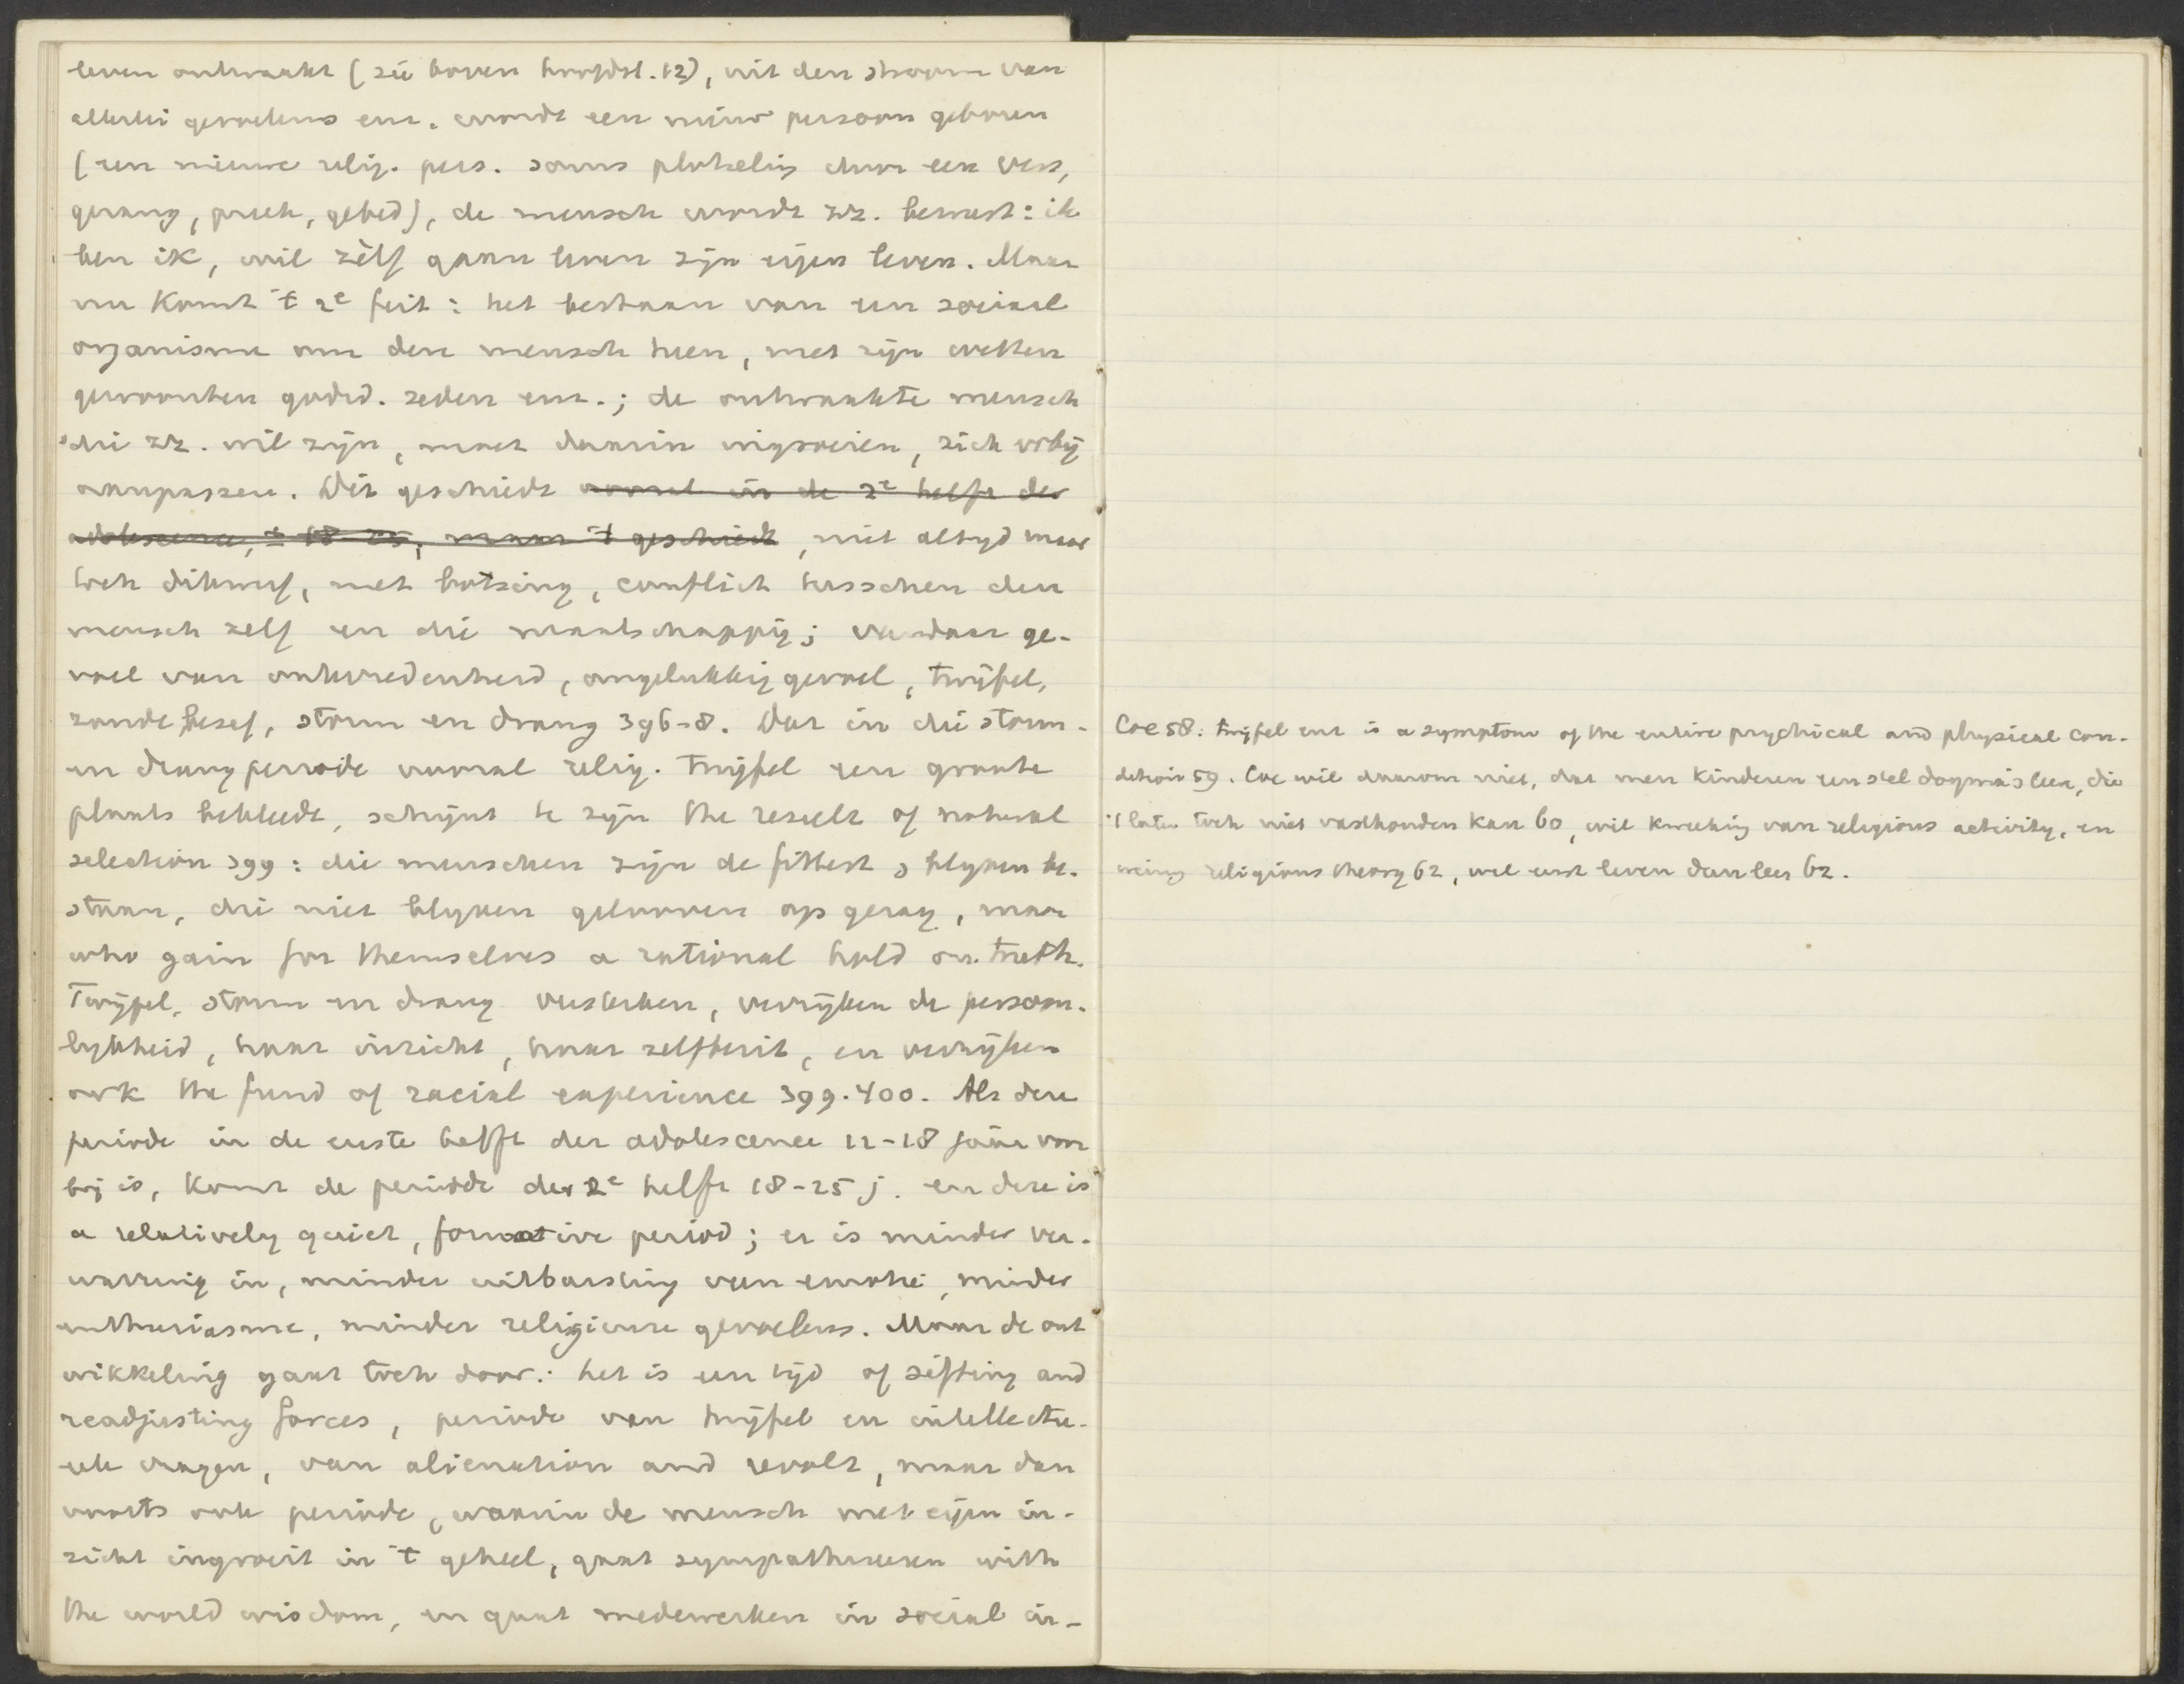 leven ontwaakt (zie boven hoofdst. 12), uit den stroom van
allerlei gevoelens enz. wordt een nieuw persoon geboren
(een nieuwe relig. pers. soms plotselig door een vers,
gezang, preek, gebed), de mensch wordt zz. bewust: ik
ben ik, wil zèlf gaan leven zijn eigen leven. Maar
nu komt 't 2e feit: het bestaan van een sociaal
organisme om den mensch heen, met zijn wetten
gewoonten godsd. zeden enz.; de ontwaakte mensch
die zz. wil zijn, moet daarin ingroeien, zich erbij
aanpassen. Dit geschiedt normaal in de 2e helft der
adolescence, ± 18-25, maar 't geschiedt, niet altyd maar
toch dikwijf, met botsing, conflict tusschen den
mensch zelf en die maatschappij; vandaar ge-
voel van ontevredenheid, ongelukkig gevoel, twijfel,
zondebesef, storm en drang 396-8. Dat in die storm-
en drang periode vooral relig. twijfel een groote
plaats bekleedt, schijnt te zijn the result of natural
selection 399: die menschen zijn de fittest, blyven be-
staan, die niet blyven gelooven op gezag, maar
who gain for themselves a rational hold on truth.
Twijfel, storm en drang versterken, verrijken de persoon-
lykheid, haar inzicht, haar zelfbezit, en verrijken
ook the fund of racial experience 399.400. Als deze
periode in de eerste helft der adolescence 12-18 jaar voor
bij is, komt de periode der 2e helft 18-25 j. en deze is
a relatively quiet, formative period; er is minder ver-
warring in, minder uitbarsting van emotie, minder
enthusiasme, minder religieuze gevoelens. Maar de ont
wikkeling gaat toch door: het is een tijd of sifting and
readjusting forces, periode van twijfel en intellectu-
eele vragen, van alienation and revolt, maar dan
voorts ook periode, waarin de mensch met eigen in-
zicht ingroeit in 't geheel, gaat sympathiseeren with
the world wisdom, en gaat medewerken in social in-
Coe 58: twijfel enz is a symptom of the entire psychical and physical con-
dition 59. Coe wil daarom niet, dat men kinderen een stel dogma's leer, die
't later toch niet vasthouden kan 60, wil kweeking van religious activity, en
weinig religious theory 62, wel eerst leven dan leer 62.